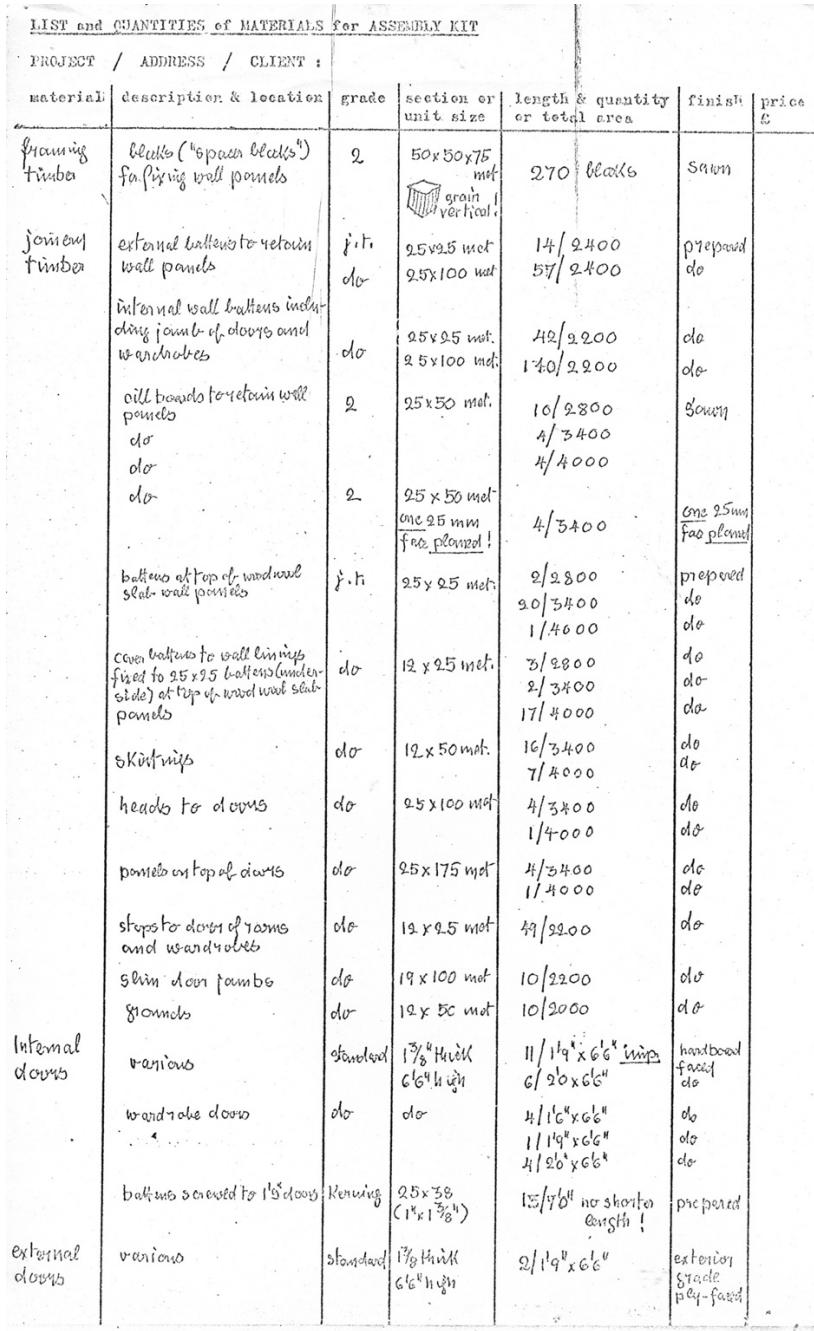 LIST and QUANTITIES of MATERIALS for ASSEMBLY KIT
PROJECT / ADDRESS / CLIENT :
material description & location grade section or unit size length & quantity or total area finish price £
framing timber blocks ("spacer blocks") for fixing wall panels 2 50x50x75 met grain vertical! 270 blocks sawn
joinery timber external battens to retain wall panels j.t. 25x25 met 14/2400 prepared
do 25x100 met 57/2400 do
internal wall battens including jamb of doors and wardrobes do 25x25 met. 42/2200 do
25x100 met. 140/2200 do
cill boards to retain wall panels 2 25x50 met. 10/2800 sawn
do 4/3400
do 4/4000
do 2 25x50 met one 25 mm face planed! 4/3400 one 25mm face planed
battens at top of woodwool slab wall panels j.t. 25x25 met. 2/2800 prepared
20/3400 do
1/4000 do
cover battens to wall linings fixed to 25x25 battens (underside) at top of wood wool slab panels do 12x25 met. 3/2800 do
2/3400 do
17/4000 do
skirtings do 12x50 met. 16/3400 do
7/4000 do
heads to doors do 25x100 met 4/3400 do
1/4000 do
panels on top of doors do 25x175 met 4/3400 do
1/4000 do
stops to doors of rooms and wardrobes do 12x25 met 49/2200 do
slim door jambs do 19x100 met 10/2200 do
grounds do 12x50 met 10/2000 do
Internal doors various standard 1⅜" thick 6'6" high 11/1'9"x6'6" imp. hardboard faced
6/2'0x6'6" do
wardrobe doors do do 4/1'6"x6'6" do
1/1'9"x6'6" do
4/2'0"x6'6" do
battens screwed to 1'9" doors Keruing 25x38 (1"x1⅝") 15/7'0" no shorter length! prepared
external doors various standard 1⅞ thick 6'6" high 2/1'9"x6'6" exterior grade ply-faced